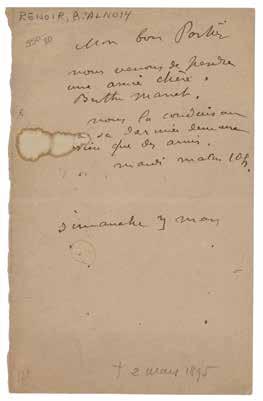 RENOIR, B:ALNO14
550-80
Mon bon Portier
nous venons de perdre
une amie chère.
Berthe Manet.
nous la conduisons
à sa dernière demeure
rien que des amis.
mardi matin 10h.
dimanche 3 mars
† 2 mars 1895